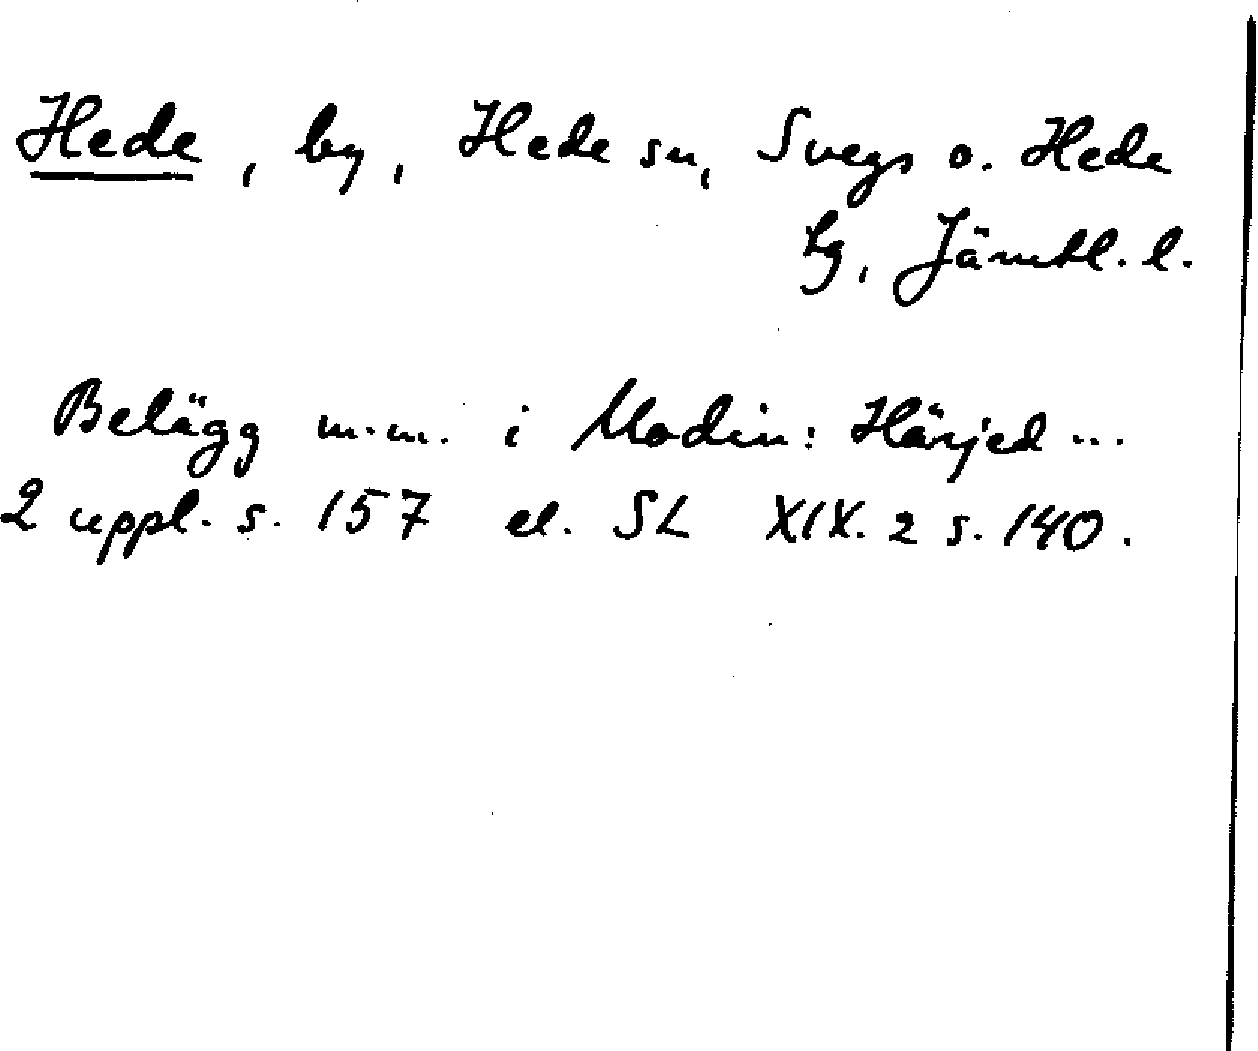 Hede, by, Hede sn, Svegs o. Hede
tg, Jämtl. l.
Belägg m.m. i Modin: Härjed...
2 uppl. s. 157 el. SL XIX. 2 s. 140.